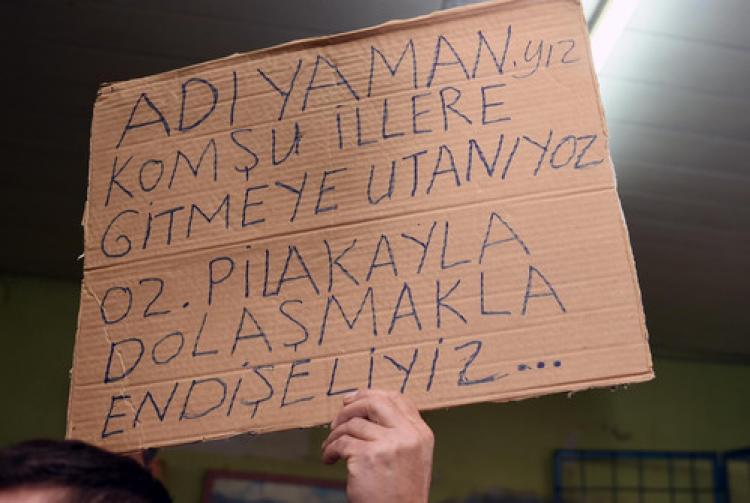 ADIYAMAN.yız
KOMŞU İLLERE
GİTMEYE UTANIYOZ
02. PİLAKAYLA
DOLAŞMAKLA
ENDİŞELİYİZ...